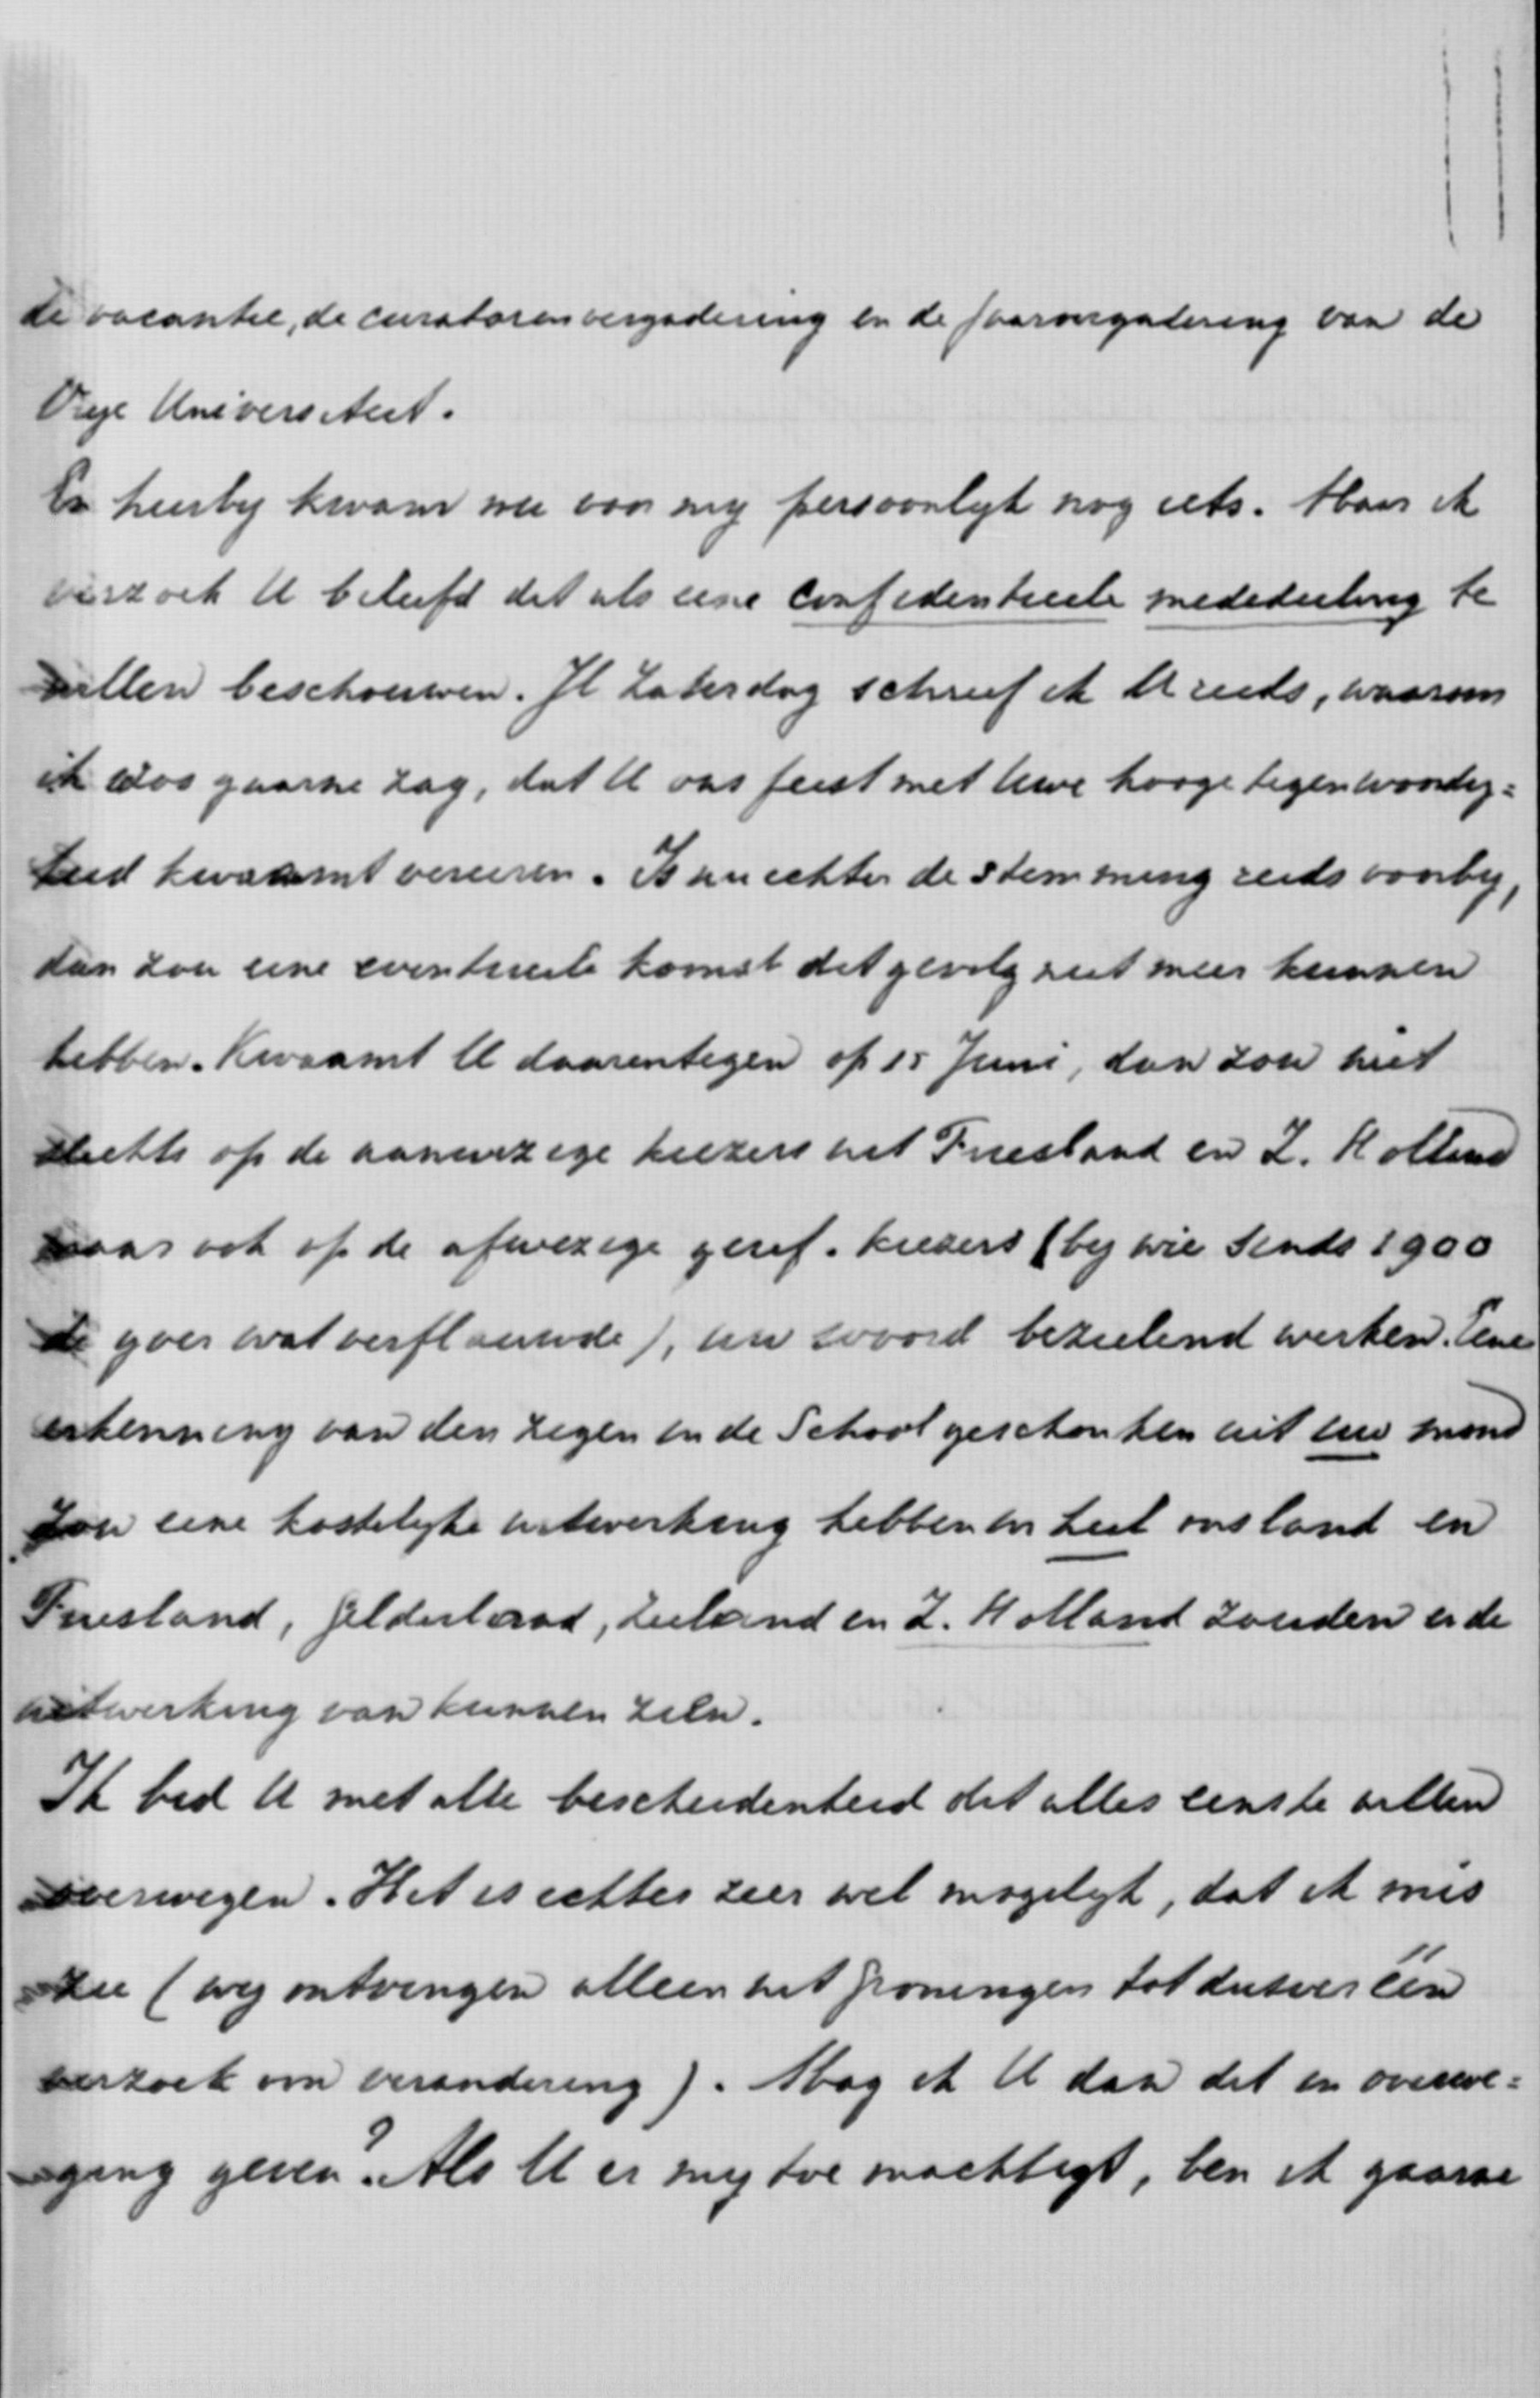 de vacantie, de curatorenvergadering en de jaarvergadering van de
Vrije Universiteit.
En hierbij kwam nu voor mij persoonlijk nog iets. Maar ik
verzoek U beleefd dit als eene confidentieele mededeeling te
willen beschouwen. Jl Zaterdag schreef ik U reeds, waarom
ik zoo gaarne zag, dat U ons feest met Uwe hooge tegenwoordig=
heid kwaamt vereeren. Is nu echter de stemming reeds voorbij,
dan zou eene eventueele komst dit gevolg niet meer kunnen
hebben. Kwaamt U daarentegen op 15 Juni, dan zou niet
slechts op de aanwezige kiezers uit Friesland en Z. Holland
maar ook op de afwezige geref. kiezers (bij wie sinds 1900
de ijver wat verflauwde), uw woord bezielend werken. Eene
erkenning van den zegen in de School geschonken uit uw mond
zou eene kostelijke uitwerking hebben in heel ons land en
Friesland, Gelderland, Zeeland en Z. Holland zouden er de
uitwerking van kunnen zien.
Ik bid U met alle bescheidenheid dit alles eens te willen
overwegen. Het is echter zeer wel mogelijk, dat ik mis
zie (wij ontvingen alleen uit Groningen tot dusver één
verzoek om verandering). Mag ik U dan dit in overwe=
ging geven? Als U er mij toe machtigt, ben ik gaarne